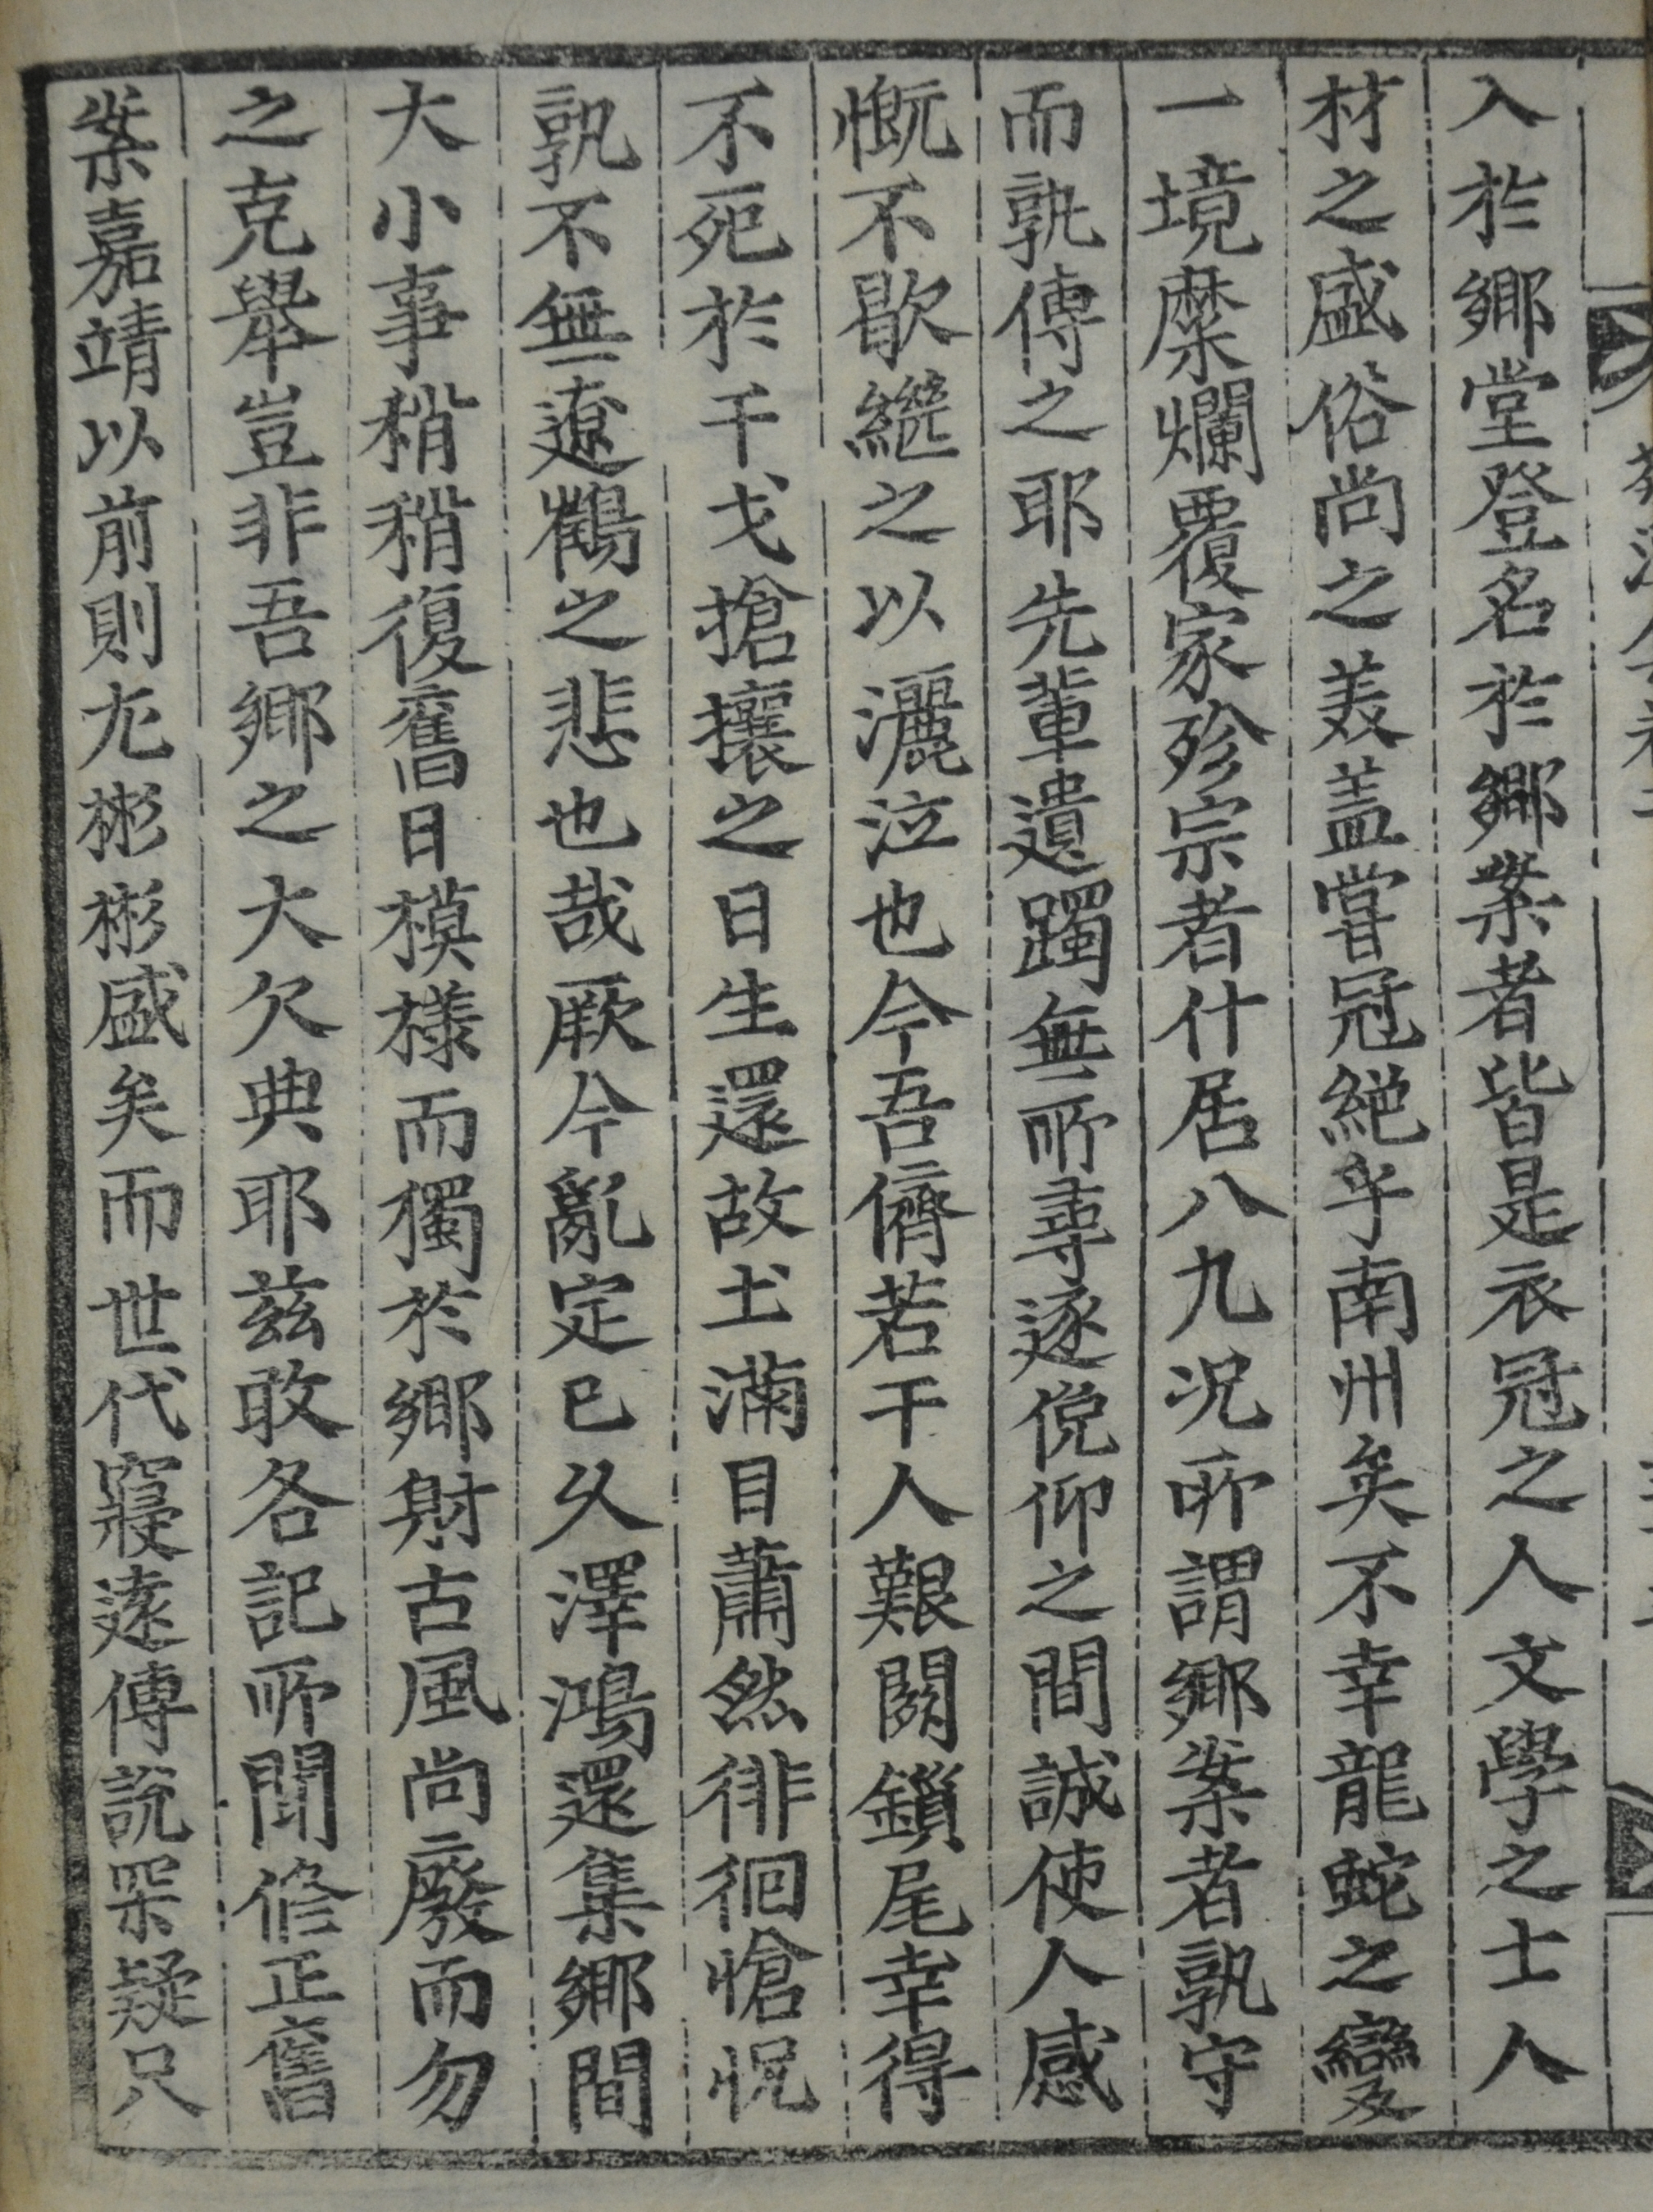 入於鄉堂登名於鄉案者皆是衣冠之人文學之士人
材之盛俗尚之美盖嘗冠絕乎南州矣不幸龍蛇之變
一境糜爛覆家殄宗者什居八九况所謂鄉案者孰守
而孰傳之耶先輩遺躅無所尋逐俛仰之間誠使人感
慨不歇繼之以灑泣也今吾儕若干人艱關鎖尾幸得
不死於干戈搶攘之日生還故土滿目蕭然徘徊愴怳
孰不無遼鶴之悲也哉厥今亂定已久澤鴻還集鄉間
大小事稍稍復舊日模樣而獨於鄉射古風尚廢而勿
之克舉豈非吾鄉之大欠典耶茲敢各記所聞修正舊
案嘉靖以前則尤彬彬盛矣而世代寢遠傳說罙疑只